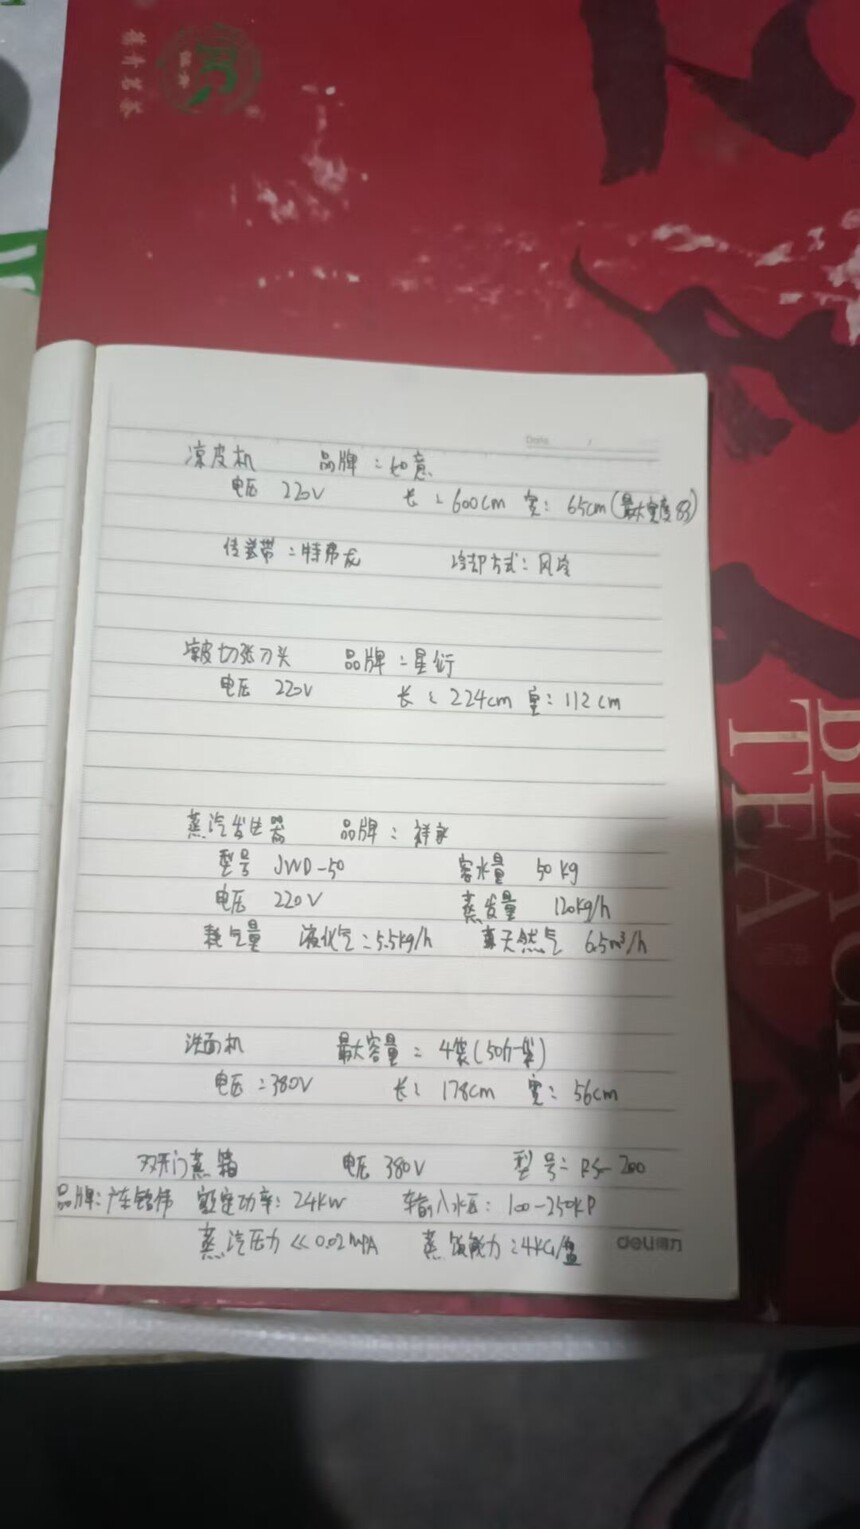 德青茗茶
BLACK
TEA
Date /
凉皮机 品牌：如意
电压 220V 长：600cm 宽：65cm(最大宽度83)
传送带：特弗龙 冷却方式：风冷
凉皮切张刀头 品牌：星衍
电压 220V 长：224cm 宽：112cm
蒸汽发生器 品牌：祥
型号 JWD-50 容水量 50kg
电压 220V 蒸发量 120kg/h
耗气量 液化气：5.5kg/h 天然气 6.5m³/h
洗面机 最大容量：4袋(50斤一袋)
电压：380V 长：178cm 宽：56cm
双开门蒸箱 电压 380V 型号：RS-200
品牌：广东铭伟 额定功率：24KW 输入水压：100-250KP
蒸汽压力 << 0.02MPA 蒸饭能力：4KG/盘
deli得力